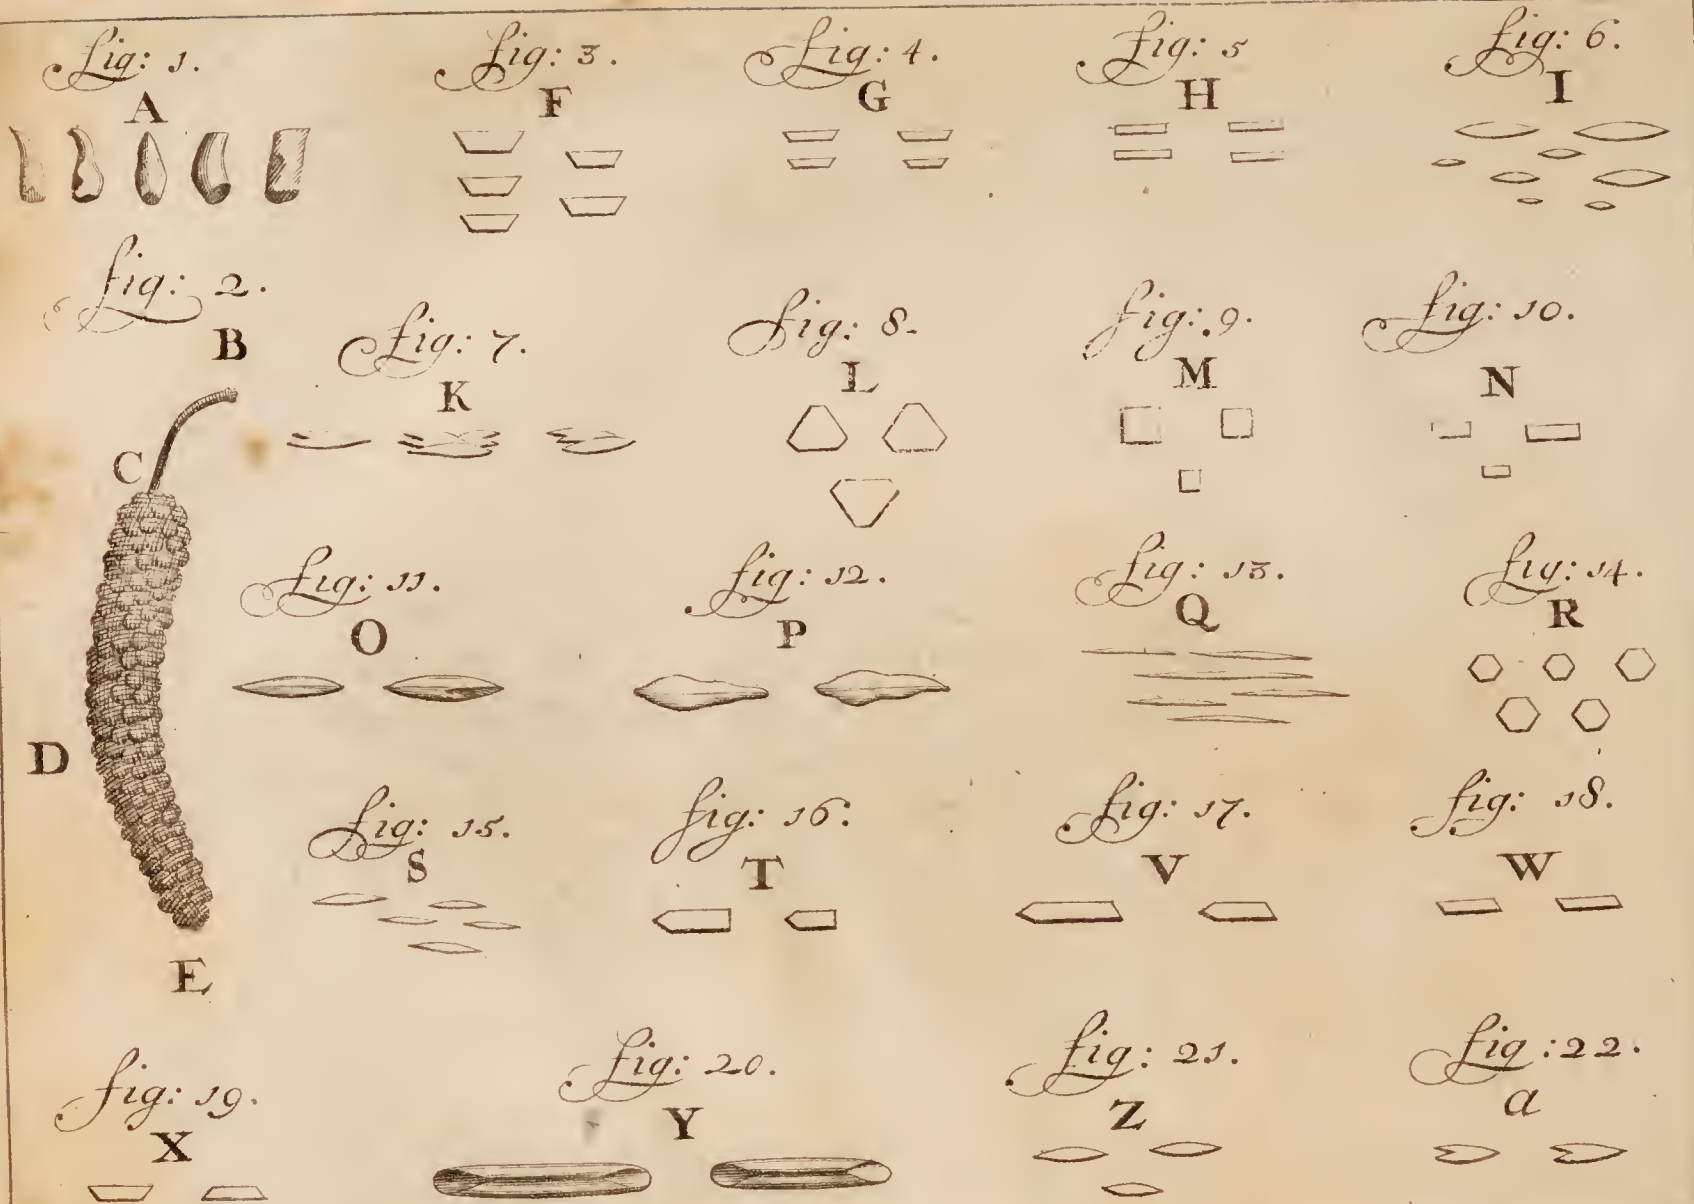 fig: 1.
A
fig: 3.
F
fig: 4.
G
fig: 5
H
fig: 6.
I
fig: 2.
B
C
D
E
fig: 7.
K
fig: 8.
L
fig: 9.
M
fig: 10.
N
fig: 11.
O
fig: 12.
P
fig: 13.
Q
fig: 14.
R
fig: 15.
S
fig: 16:
T
fig: 17.
V
fig: 18.
W
fig: 19.
X
fig: 20.
Y
fig: 21.
Z
fig: 22.
a